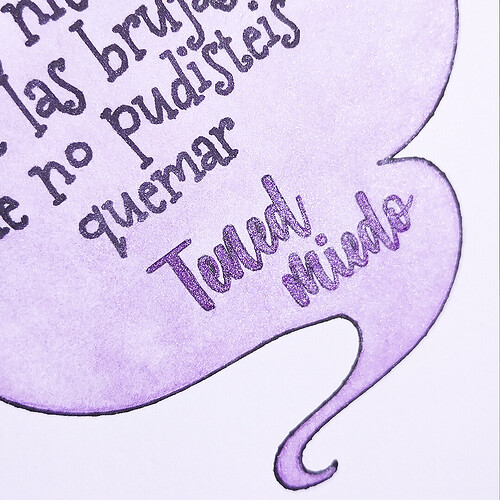 las brujas
no pudisteis
quemar
Tened
miedo